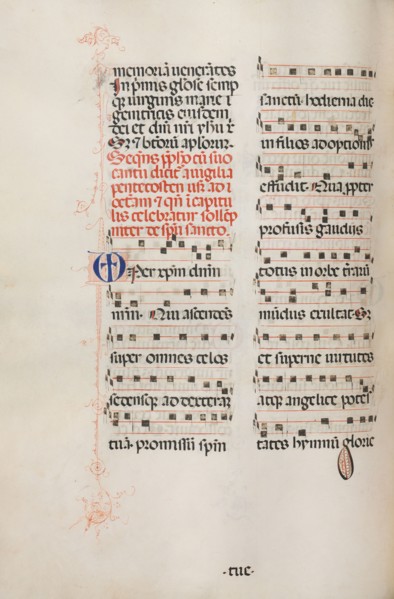 memoriã uenerãtes
In p̃mis gl̃ose semp
q̃ꝫ uirginis marie ⁊
genitricis eiusdem
dei et dñi nr̃i yhu x̃
Sꝫ ⁊ beatoꝝ apl̃orum
Seq̃ns p̃fato cũ suo
cantu dicit̃ ĩ uigilia
pentecosten usq̃ ad
octauã ⁊ q̃ñ ĩ capitu
lis celebratur sollẽp
niter de sp̃u sancto.
Per xp̃m dñm
nr̃m. Qui ascendẽs
super omnes celos
sedensq̃ꝫ ad dexterã
tuã. promissũ sp̃m
sanctũ. hodierna die
in filios adoptionis
effudit. Qua p̃pter
profusis gaudiis
totus in orbe terraꝝ
mũdus exultat. Sꝫ
et superne uirtutes
atq̃ꝫ angelice potes
tates hymnũ glorie
·tue·